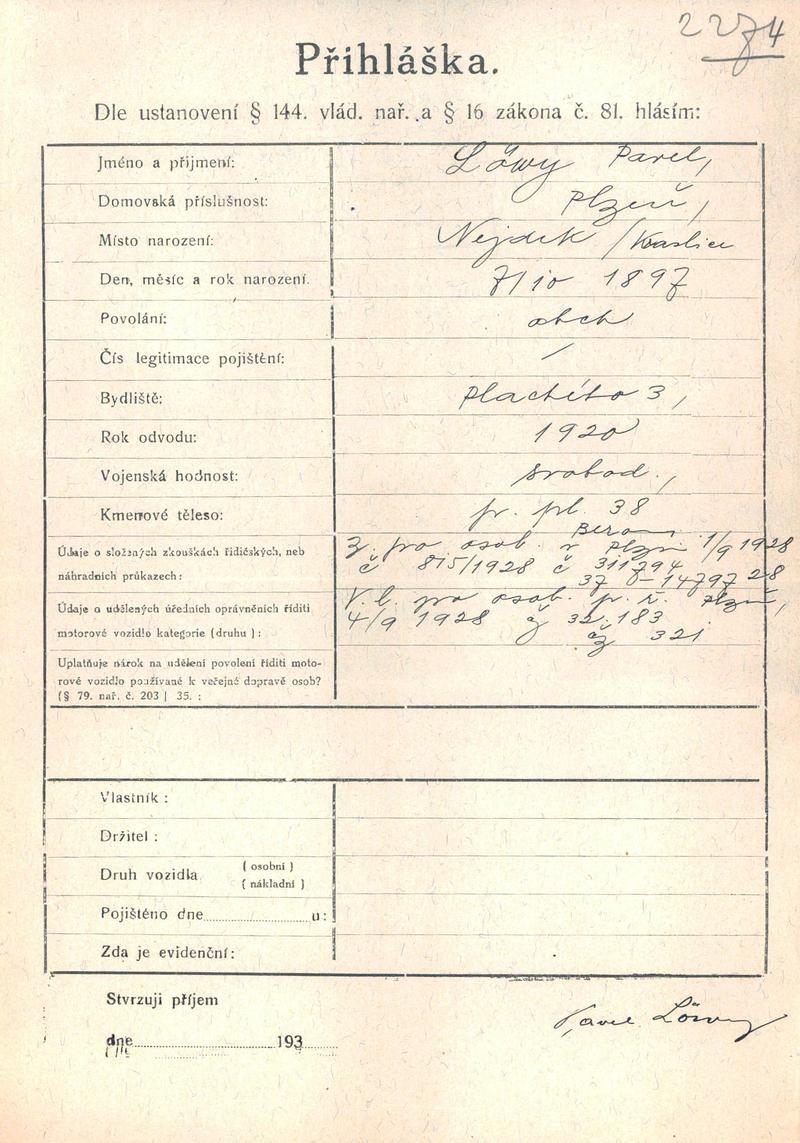 2274
Přihláška.
Dle ustanovení § 144. vlád. nař. a § 16 zákona č. 81. hlásím:
Jméno a příjmení: Löwy Pavel,
Domovská příslušnost: Plzeň,
Místo narození: Nejdek / Kraslice
Den, měsíc a rok narození. 7/10 1897
Povolání: obch
Čís legitimace pojištění: /
Bydliště: Plachého 3,
Rok odvodu: 1920
Vojenská hodnost: svobod.,
Kmenové těleso: pr. pl. 38
Beroun
Údaje o složených zkouškách řidičských, neb Z. pro osob. v Plzni 1/9 1928
náhradních průkazech: č 815/1928 č 311794
37 0-14797 28
Údaje o udělených úředních oprávněních říditi V. l. pro osob. p. ř. Plzeň,
motorové vozidlo kategorie (druhu): 4/9 1928 č 32.183
čž 321
Uplatňuje nárok na udělení povolení říditi moto-
rové vozidlo používané k veřejné dopravě osob?
(§ 79. nař. č. 203 | 35. :
Vlastník :
Držitel :
Druh vozidla ( osobní )
( nákladní )
Pojištěno dne u:
Zda je evidenční:
Stvrzuji příjem
Pavel Löwy
dne 193